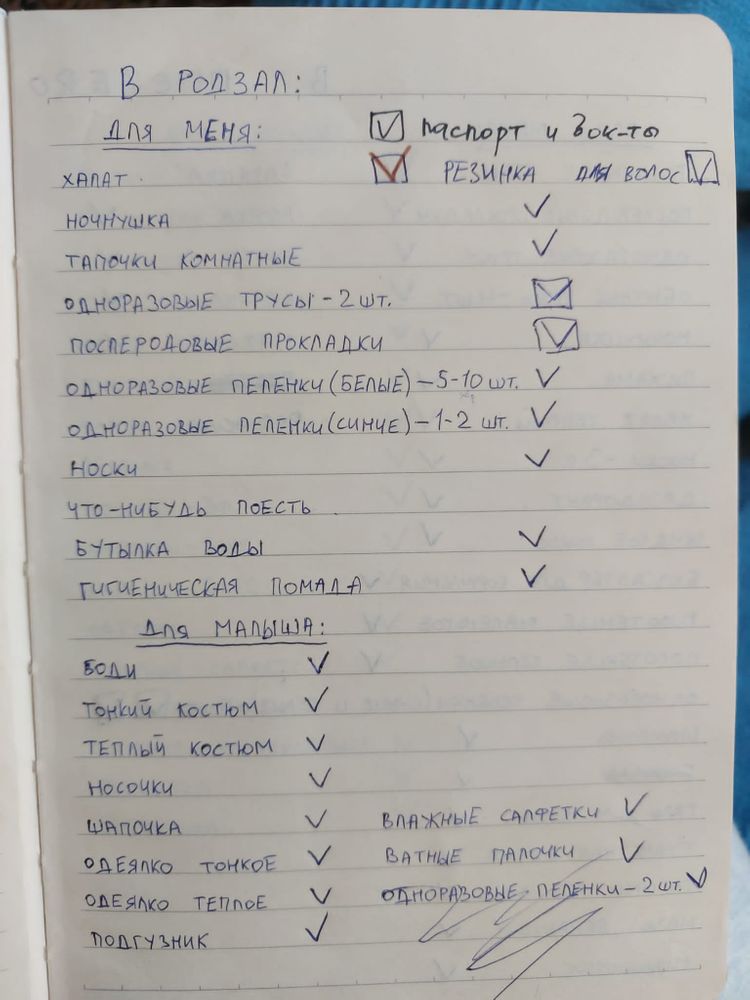 В РОДЗАЛ:
ДЛЯ МЕНЯ: ☑ паспорт и док-ты
ХАЛАТ. ☑ РЕЗИНКА ДЛЯ ВОЛОС ☑
НОЧНУШКА ✓
ТАПОЧКИ КОМНАТНЫЕ ✓
ОДНОРАЗОВЫЕ ТРУСЫ - 2 шт. ☑
ПОСЛЕРОДОВЫЕ ПРОКЛАДКИ ☑
ОДНОРАЗОВЫЕ ПЕЛЕНКИ (БЕЛЫЕ) - 5-10 шт. ✓
ОДНОРАЗОВЫЕ ПЕЛЕНКИ (СИНИЕ) - 1-2 шт. ✓
НОСКИ ✓
ЧТО-НИБУДЬ ПОЕСТЬ .
БУТЫЛКА ВОДЫ ✓
ГИГИЕНИЧЕСКАЯ ПОМАДА ✓
ДЛЯ МАЛЫША:
БОДИ ✓
ТОНКИЙ КОСТЮМ ✓
ТЕПЛЫЙ КОСТЮМ ✓
НОСОЧКИ ✓
ШАПОЧКА ✓ ВЛАЖНЫЕ САЛФЕТКИ ✓
ОДЕЯЛКО ТОНКОЕ ✓ ВАТНЫЕ ПАЛОЧКИ ✓
ОДЕЯЛКО ТЕПЛОЕ ✓ ОДНОРАЗОВЫЕ ПЕЛЕНКИ - 2 шт. ✓
ПОДГУЗНИК ✓